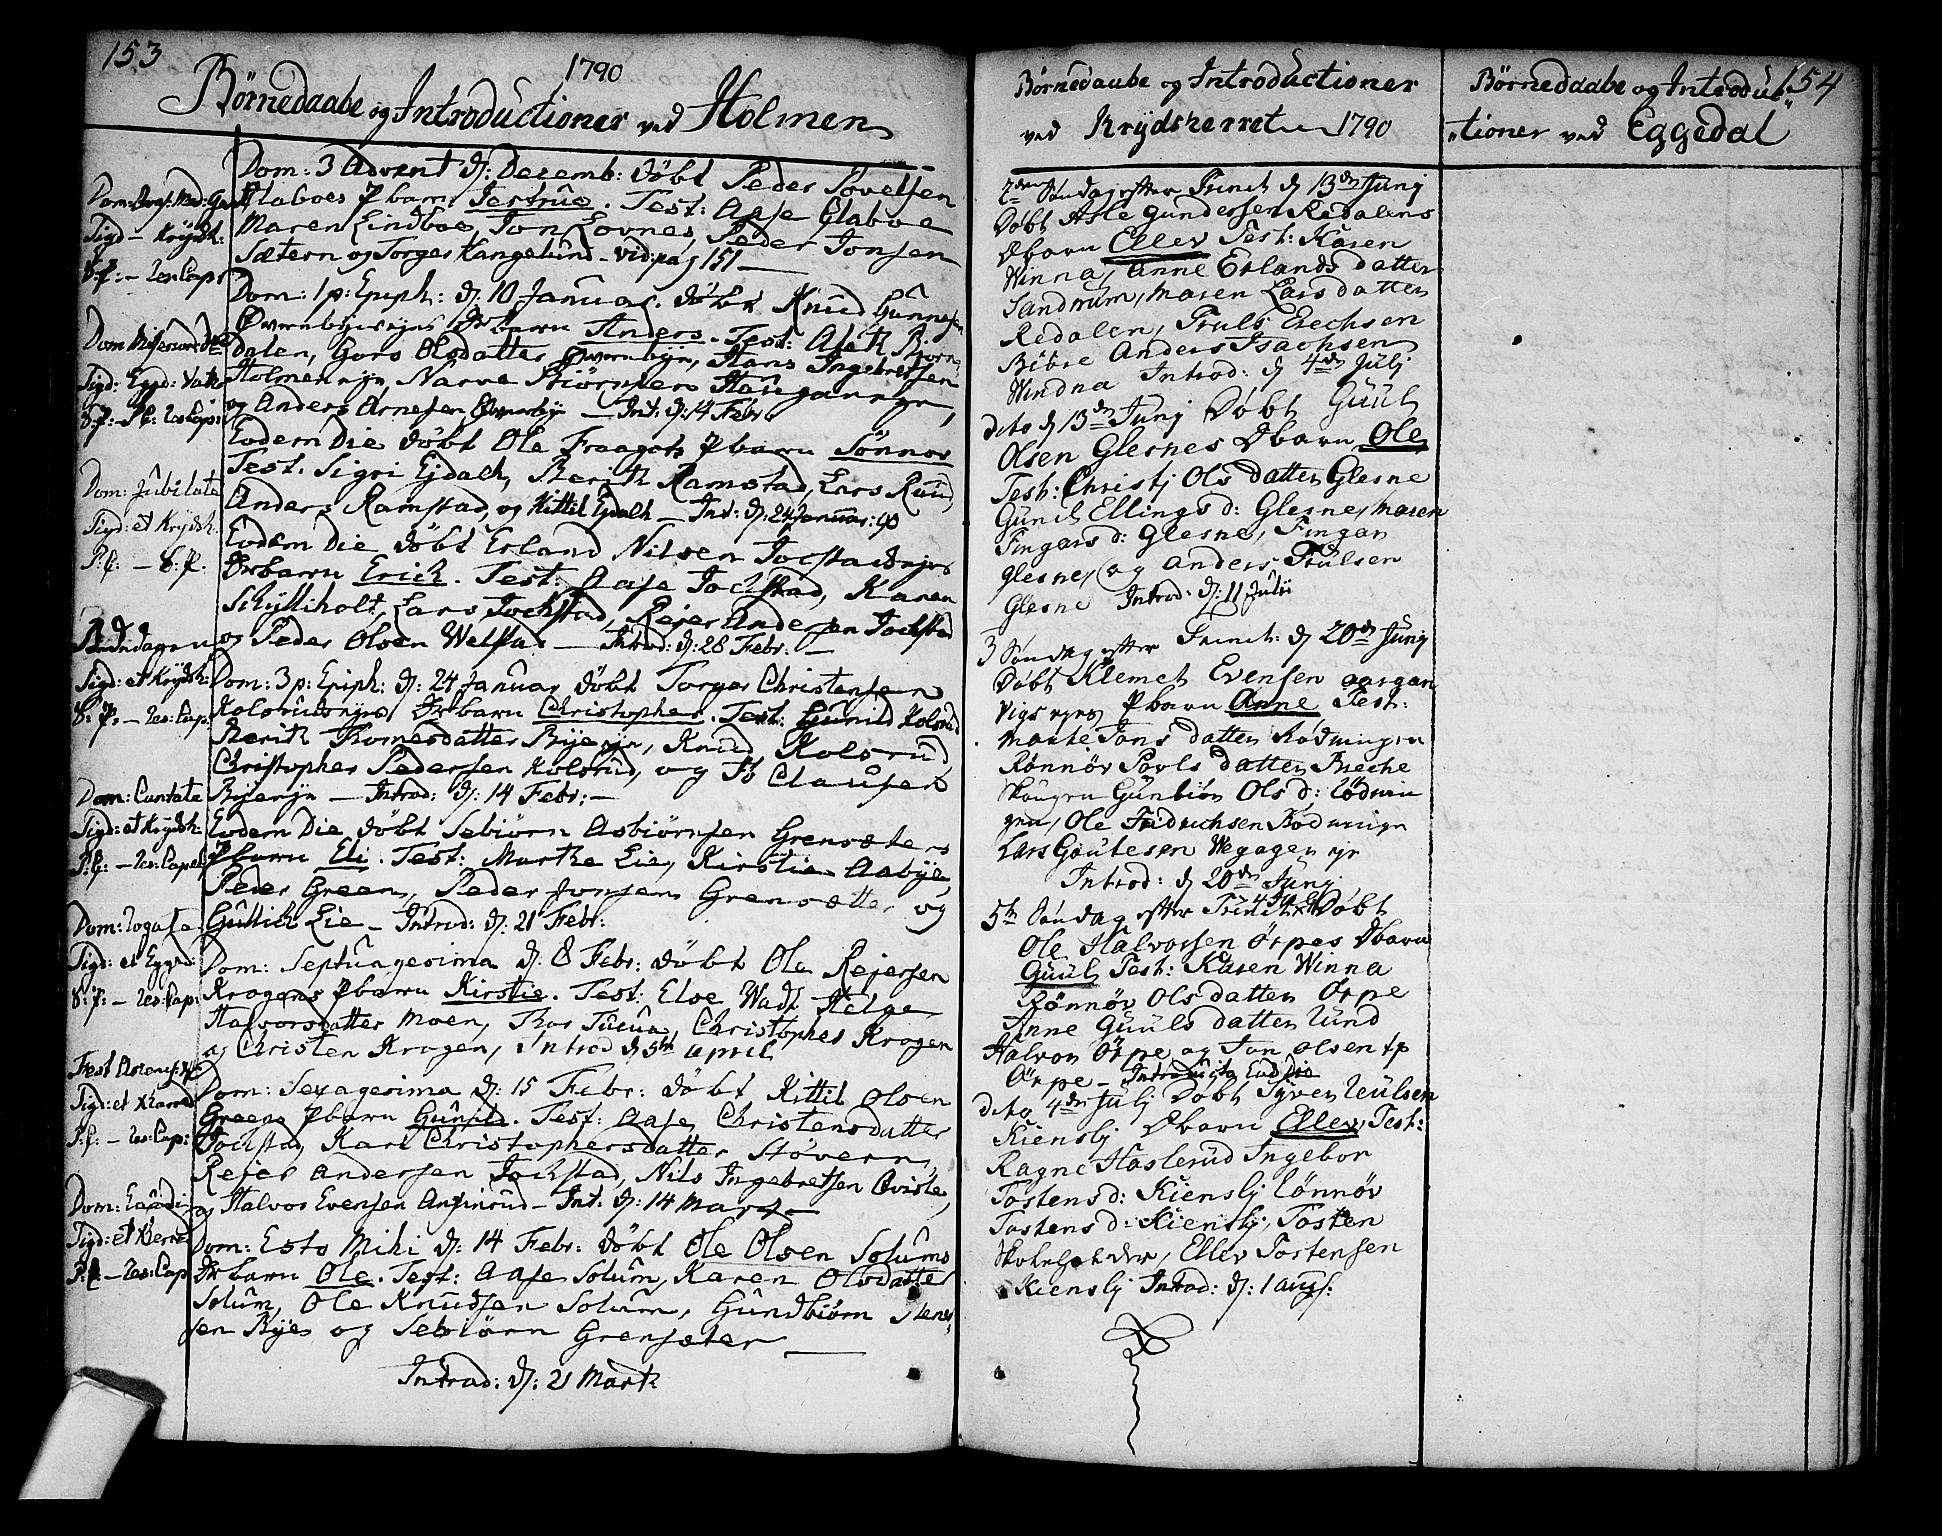 153
1790
Børnedaabe og Introductioner ved Holmen
Dom: 3 Advent d: Decemb: døbt Peder Povelsen
Glaboes Pbarn Jertrue. Test: Aase Glaboe
Maren Lindboe, Jon Lovnes, Peder Jonsen
Sætern og Torger Kangelund - vid: pag 151
Dom: 1 p: Epiph: d: 10 Januar. døbt Knud Gunnersen
Øvernbyeeyes Drbarn Anders. Test: Aleth Bjorn-
dalen, Goro Olsdatter Øvernbye, Hans Ingebretsen
Holmen eye, Narve Biørnsen Haugann eye,
og Anders Arnesen Øvernbye - Int: d: 14 Febr:
Eodem Die døbt Ole Fraagots Pbarn Gønnor
Test. Sigri Ejdalh, Berith Ramstad, Lars Ruud
Anders Ramstad, og Kittil Ejdalh - Int: d: 24 Januar: 90
Eodem Die døbt Erland Nilsen Jocstadeyes
Drbarn Erich. Test: Aase Jochstad, Karen
Schylliholt, Lars Jochstad, Rejer Andersen Jochstad
og Peder Olsen Welstad - Introd: d: 28 Febr: -
Dom: 3 p: Epiph: d: 24 Januar døbt Torger Christensen
Kolsrudseyes Drbarn Christopher. Test: Gunild Kolsrud
Berith Thomesdatter Byeeye, Knud Kolsrud
Christopher Pedersen Kolsrud, og Ib Clausen
Byeeye - Introd: d: 14 Febr: -
Eodem Die døbt Sebiørn Asbiørnsen Grensæters
Pbarn Eli. Test: Marthe Lie, Kirstie Aabye,
Peder Green, Peder Jonsen Grensætter og
Gullich Lie - Introd: d: 21 Febr:
Dom: Septuagesima d. 8 Febr: døbt Ole Rejersen
Kragens Pbarn Kirstie. Test: Eloe Wadt Helge
Halvorsdatter Moen, Thor Tueua, Christopher Kragen
og Christen Kragen, Introd d 5te April
Dom: Sexagesima d: 15 Febr: døbt Kittil Olsen
Greens Pbarn Gunild. Test: Aase Christensdatter
Jochstad, Kari Christophersdatter Støvern,
Rejer Andersen Jochstad, Nils Ingebretsen Qviste,
og Halvor Evensen Anfinrud - Int: d: 14 Marts -
Dom: Esto Mihi d: 14 Febr: døbt Ole Olsen Solums
Drbarn Ole. Test: Aase Solum, Karen Olsdatter
Solum, Ole Knudsen Solum, Gundbiørn Stene-
sen Bye og Sebiørn Grensæter
Introd: d: 21 Marti
Tigd - Krydsh:
S: P: - Res: Cap:
Tigd: Egge:
S: P: - Res: Cap:
Dom: Jubilate
Tigd: et Krydsh.
P: C: - S: P.
Tigd: et Krydsh:
S: P: - Res: Cap:
Dom: Cantate
Tigd: et Krydsh:
P: C: - Res: Capel
Dom: Rogate
Tigd: et Egged:
S: P: - Res: Cap:
Fest Ascens:
P: C: - Res: Cap:
Dom: Exaudi
P: C - Res: Cap
Børnedaabe og Introductioner
ved Krydsherret 1790
2den Søndag efter Trinit d 13de Junj
Døbt Asle Gundersen Redalens
Dbarn Ellev Test: Karen
Winna, Anne Erlands datter
Sandrum, Maren Lars datter
Redalen, Truls Erechsen
Bibre Anders Isachsen
Windna Introd: d 4de Julj
dito d 13de Junj Døbt Guul
Olsen Glesnes Dbarn Ole
Test: Christj Ols datter Glesne
Gunil Ellings d: Glesne, Maren
Fingars d: Glesne, Fingar
Glesne, og Anders Trulsen
Glesne Introd: d: 11 Julii
3 Søndag efter Trinit: d 20de Junj
Døbt Klemet Evensen aargan
Vigs eyes Pbarn Anne Test:
Marte Jons datter Rødningen
Rønnøv Povls datter Breche
Skougen Gunbiør Ols d: Rødnin
gen, Ole Fridrichsen Rødningen
Lars Goutesen Wegagen eye
Introd: d 20de Junj
5te Søndag efter Trinit Døbt
Ole Halvorsen Ørpes Dbarn
Guul Test: Karen Winna
Rønnøv Ols datter Ørpe
Anne Guuls datter Lund
Halvor Ørpe og Jon Olsen
Ørpe - Introducta Eod die
dito 4de Julj Døbt Syver Ueulsen
Kienslj Dbarn Ellev, Test:
Ragne Haslerud Ingebor
Tostens d: Kienslj Rønnøv
Tostens d: Kienslj, Tosten
Ellev Tostensen
Kienslj Introd: d: 1 augs:
154
Børnedaabe og Introduc-
-tioner ved Eggedal